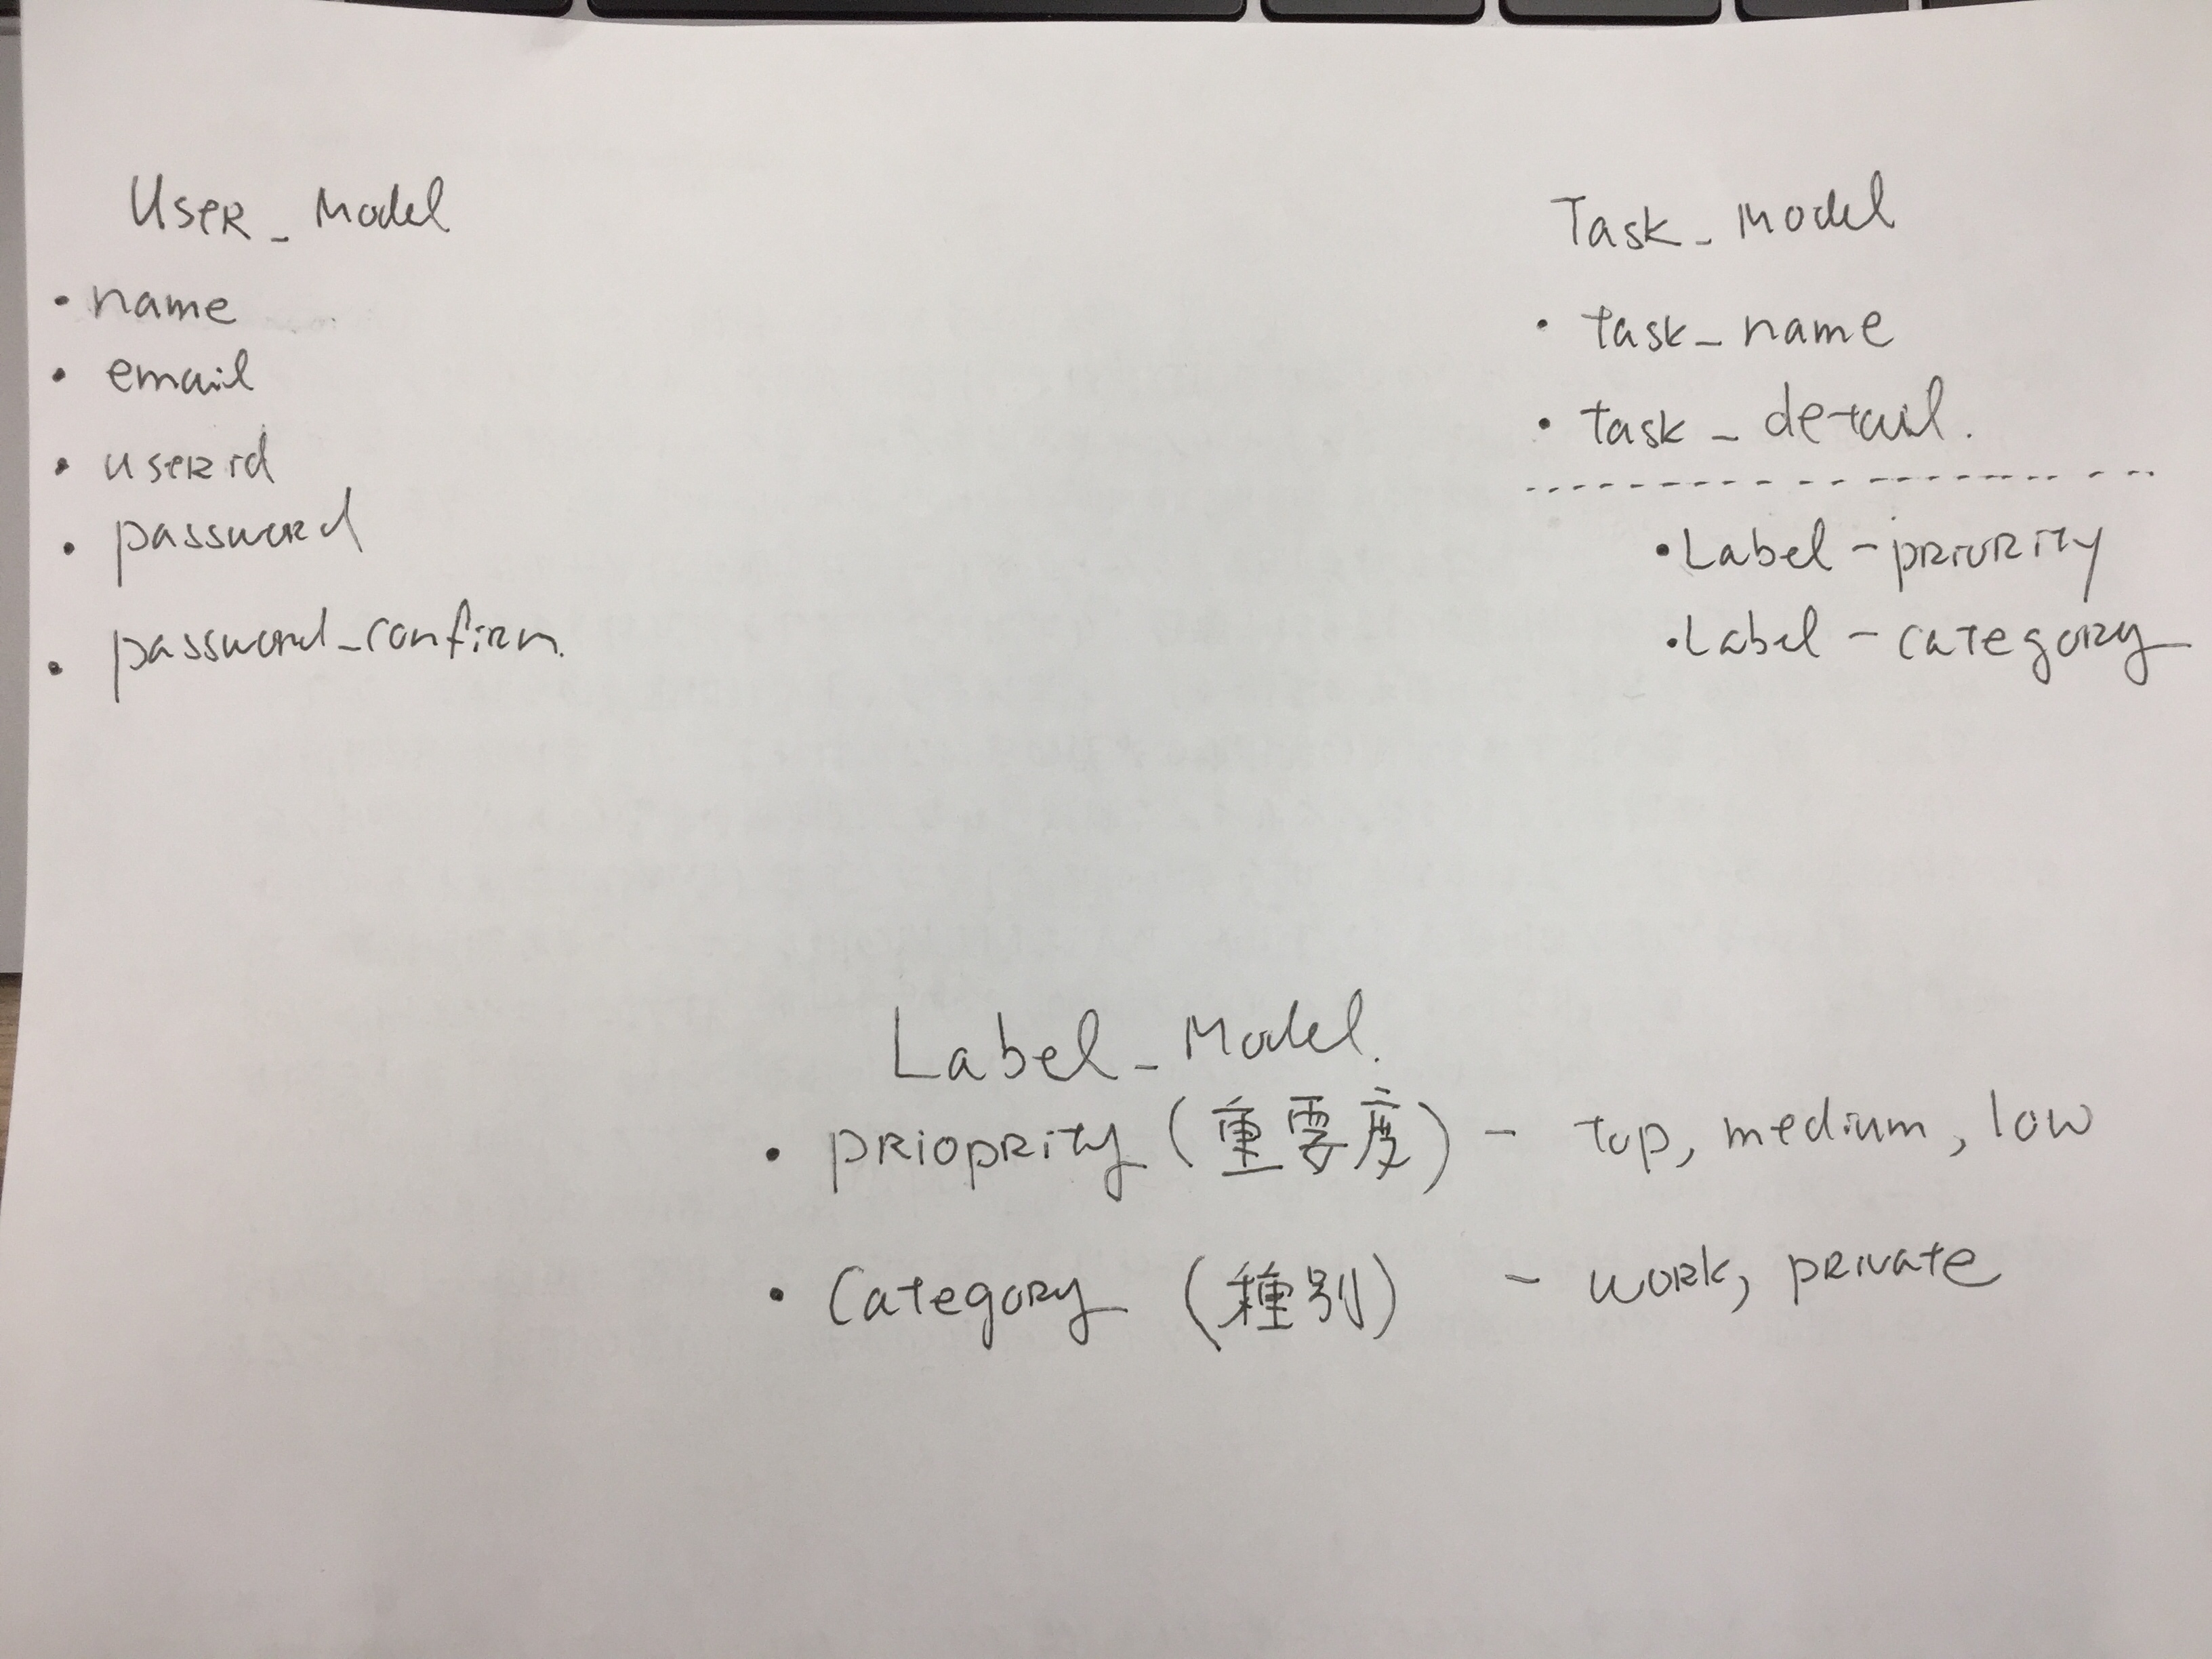 User_Model
• name
• email
• userid
• password
• password_confirm.
Task_Model
• task_name
• task_detail.
• Label-priority
• Label-category
Label_Model.
• prioprity (重要度) - top, medium, low
• Category (種別) - work, private